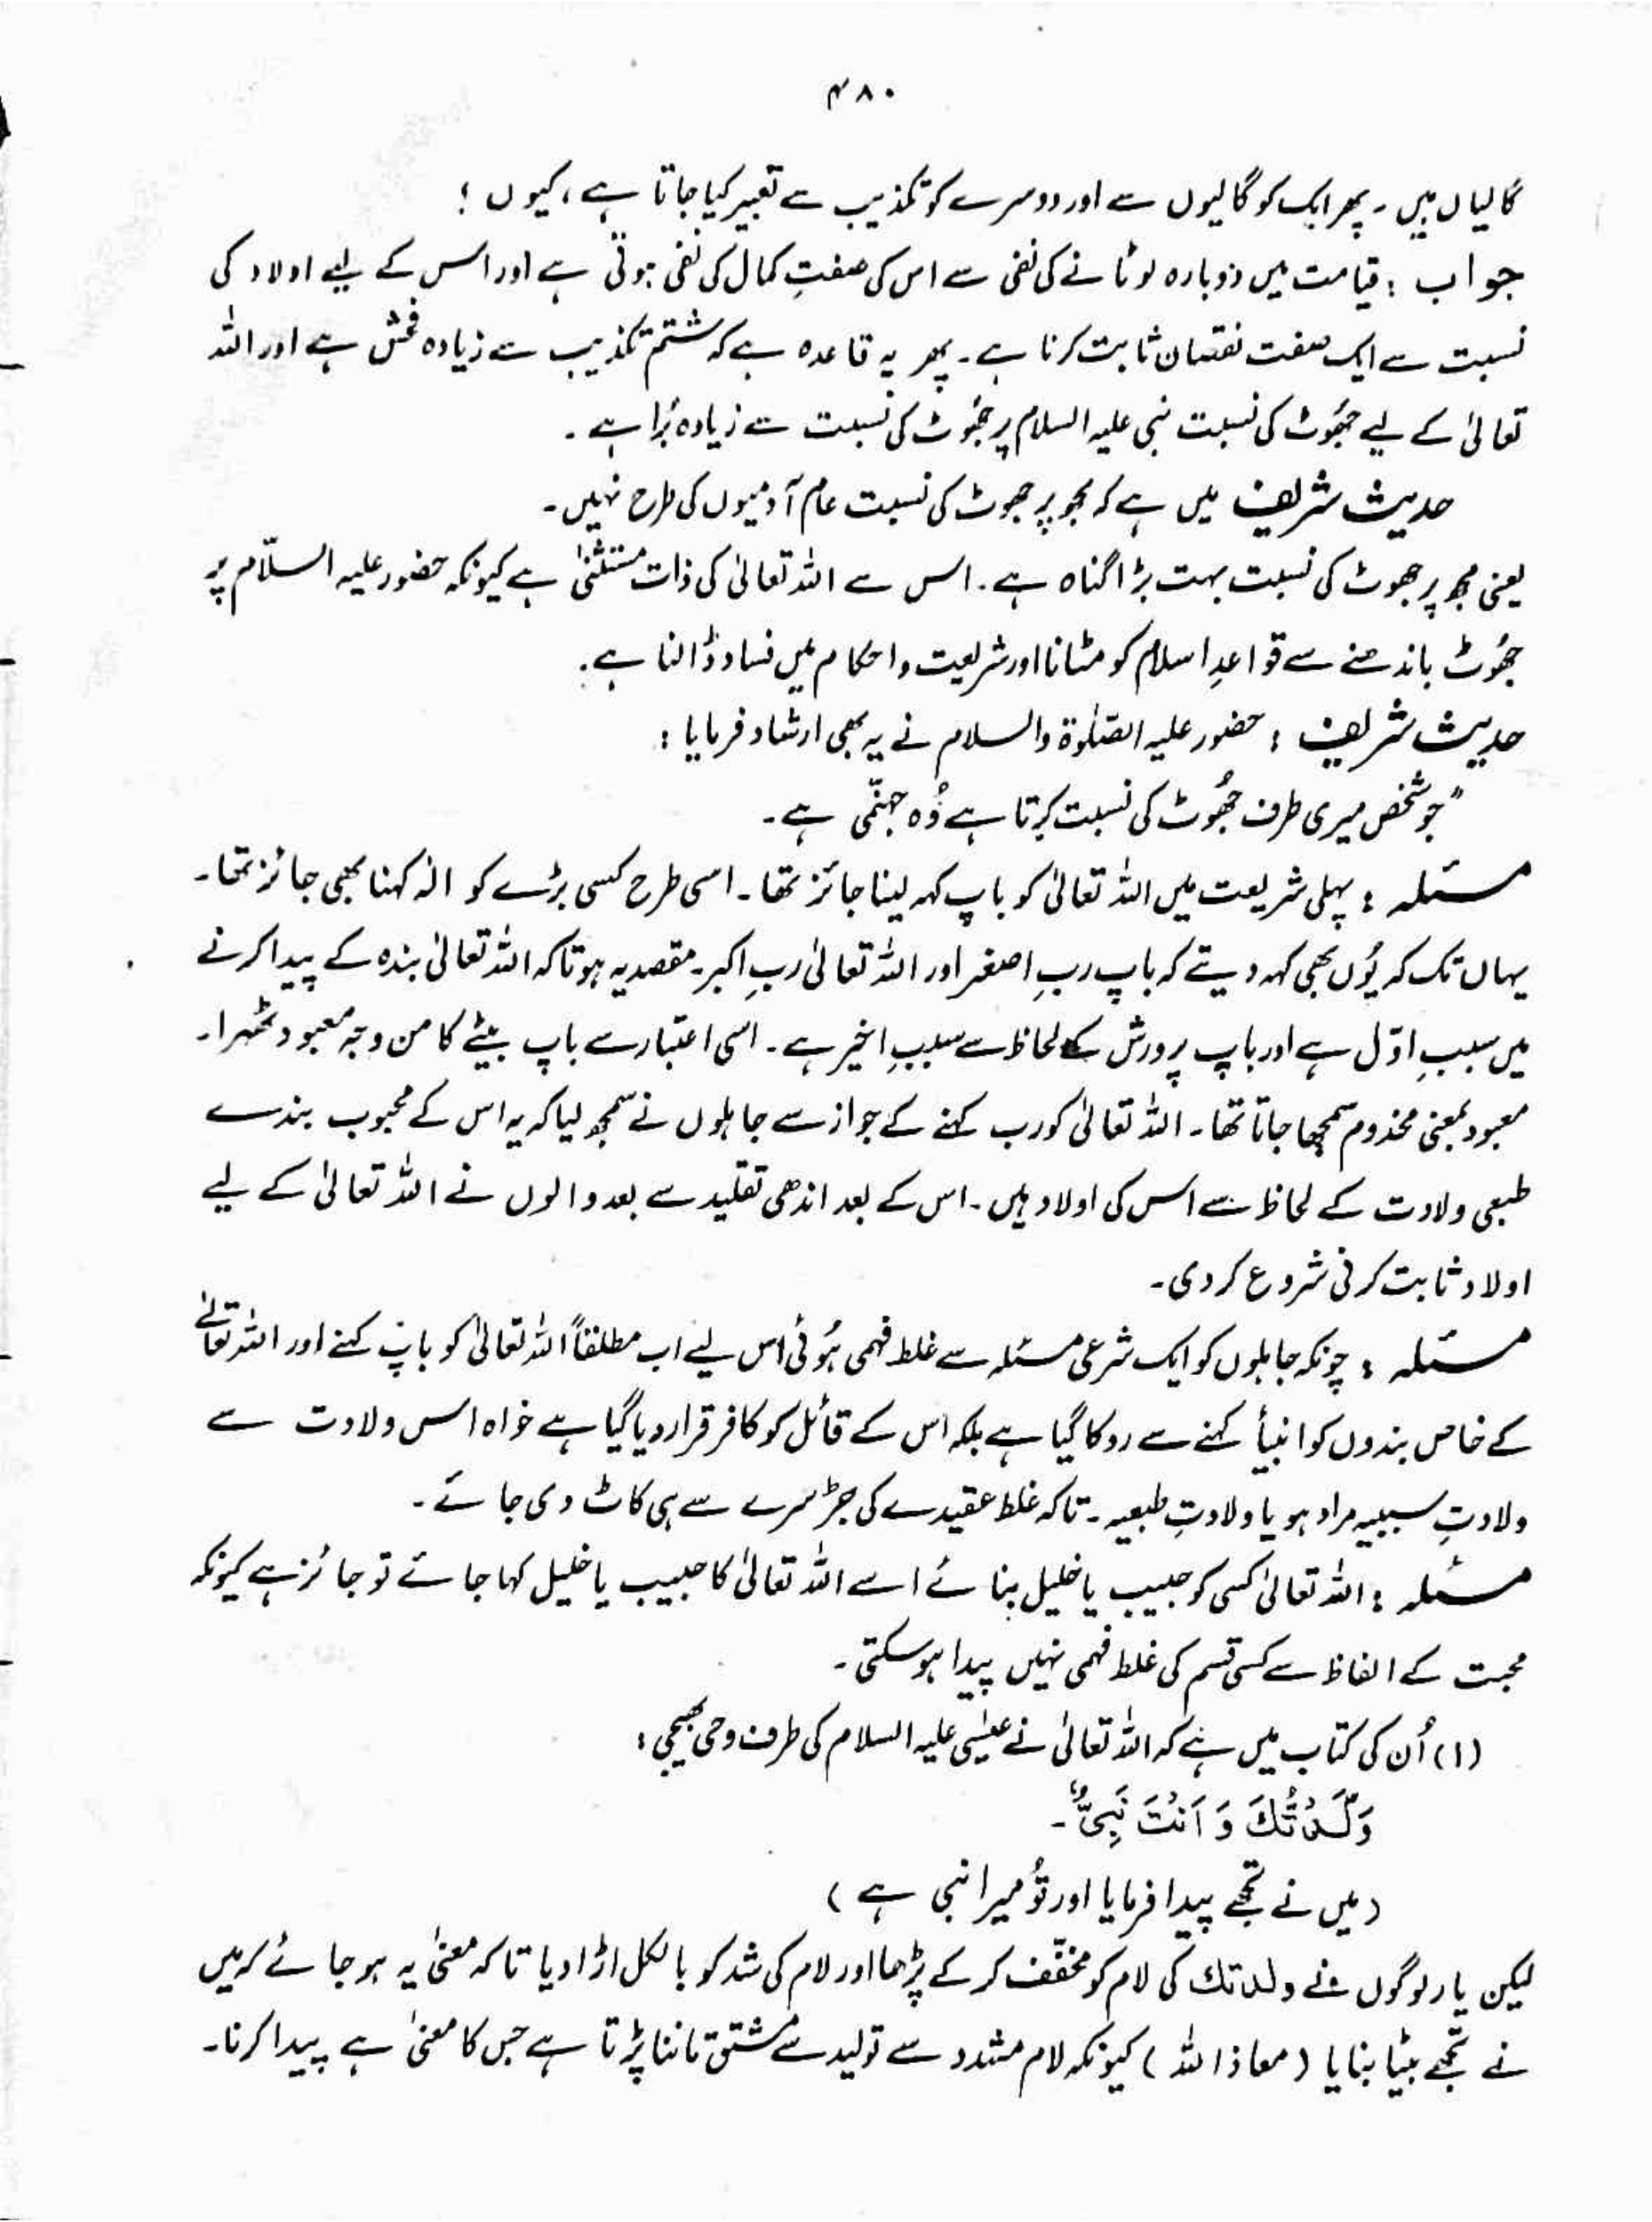 ۴۸۰
گالیاں ہیں ۔ پھر ایک کو گالیوں سے اور دوسرے کو تکذیب سے تعبیر کیا جاتا ہے ، کیوں ؛
جواب : قیامت میں دوبارہ لوٹانے کی نفی سے اس کی صفتِ کمال کی نفی ہوتی ہے اور اس کے لیے اولاد کی
نسبت سے ایک صفت نقصان ثابت کرنا ہے ۔ پھر یہ قاعدہ ہے کہ شتم تکذیب سے زیادہ فحش ہے اور اللہ
تعالیٰ کے لیے جھُوٹ کی نسبت نبی علیہ السلام پر جھُوٹ کی نسبت سے زیادہ بُرا ہے ۔
حدیث شریف میں ہے کہ مجھ پر جھوٹ کی نسبت عام آدمیوں کی طرح نہیں ۔
یعنی مجھ پر جھوٹ کی نسبت بہت بڑا گناہ ہے ۔ اس سے اللہ تعالیٰ کی ذات مستثنیٰ ہے کیونکہ حضور علیہ السلّام پر
جھُوٹ باندھنے سے قواعدِ اسلام کو مٹانا اور شریعت و احکام میں فساد ڈالنا ہے ۔
حدیث شریف : حضور علیہ الصّلوٰۃ والسلام نے یہ بھی ارشاد فرمایا :
" جو شخص میری طرف جھُوٹ کی نسبت کرتا ہے وُہ جہنّمی ہے ۔
مسئلہ : پہلی شریعت میں اللہ تعالیٰ کو باپ کہہ لینا جائز تھا ۔ اسی طرح کسی بڑے کو الٰہ کہنا بھی جائز تھا ۔
یہاں تک کہ یُوں بھی کہہ دیتے کہ باپ ربِ اصغر اور اللہ تعالیٰ ربِ اکبر ۔ مقصد یہ ہوتا کہ اللہ تعالیٰ بندہ کے پیدا کرنے
میں سببِ اوّل ہے اور باپ پرورش کے لحاظ سے سببِ اخیر ہے ۔ اسی اعتبار سے باپ بیٹے کا من وجہ معبود ٹھہرا ۔
معبود بمعنی مخدوم سمجھا جاتا تھا ۔ اللہ تعالیٰ کو رب کہنے کے جواز سے جاہلوں نے سمجھ لیا کہ یہ اس کے محبوب بندے
طبعی ولادت کے لحاظ سے اس کی اولاد ہیں ۔ اس کے بعد اندھی تقلید سے بعد والوں نے اللہ تعالیٰ کے لیے
اولاد ثابت کرنی شروع کر دی ۔
مسئلہ : چونکہ جاہلوں کو ایک شرعی مسئلہ سے غلط فہمی ہُوئی اس لیے اب مطلقاً اللہ تعالیٰ کو باپ کہنے اور اللہ تعالیٰ
کے خاص بندوں کو انبیأ کہنے سے روکا گیا ہے بلکہ اس کے قائل کو کافر قرار دیا گیا ہے خواہ اس ولادت سے
ولادتِ سببیہ مراد ہو یا ولادتِ طبعیہ ۔ تاکہ غلط عقیدے کی جڑ سرے سے ہی کاٹ دی جائے ۔
مسئلہ : اللہ تعالیٰ کسی کو حبیب یا خلیل بنائے اسے اللہ تعالیٰ کا حبیب یا خلیل کہا جائے تو جائز ہے کیونکہ
محبت کے الفاظ سے کسی قسم کی غلط فہمی نہیں پیدا ہو سکتی ۔
(۱) اُن کی کتاب میں ہے کہ اللہ تعالیٰ نے عیسٰی علیہ السلام کی طرف وحی بھیجی :
وَلَّدْتُّكَ وَ اَنْتَ نَبِیٌّ ۔
(میں نے تجھے پیدا فرمایا اور تُو میرا نبی ہے )
لیکن یار لوگوں نے ولدتك کی لام کو مخفّف کر کے پڑھا اور لام کی شد کو بالکل اڑا دیا تاکہ معنیٰ یہ ہو جائے کہ میں
نے تجھے بیٹا بنایا (معاذ اللہ ) کیونکہ لام مشدد سے تولید سے مشتق ماننا پڑتا ہے جس کا معنیٰ ہے پیدا کرنا ۔